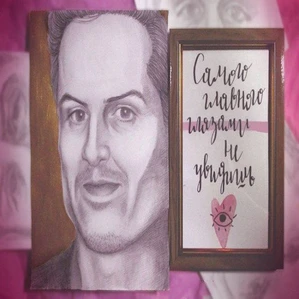 Самого
главного
глазами
не
увидишь